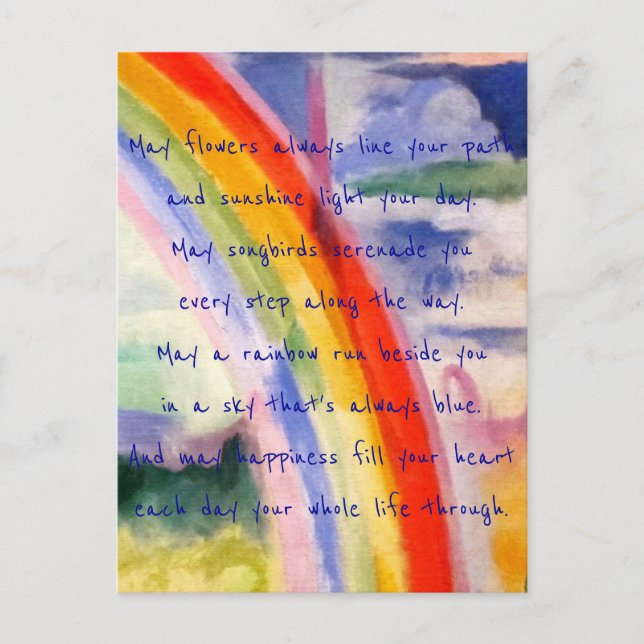 May flowers always line your path
and sunshine light your day.
May songbirds serenade you
every step along the way.
May a rainbow run beside you
in a sky that's always blue.
And may happiness fill your heart
each day your whole life through.